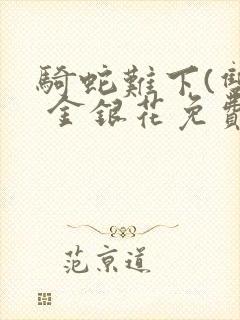 騎蛇難下(雙
金銀花免費
范京道